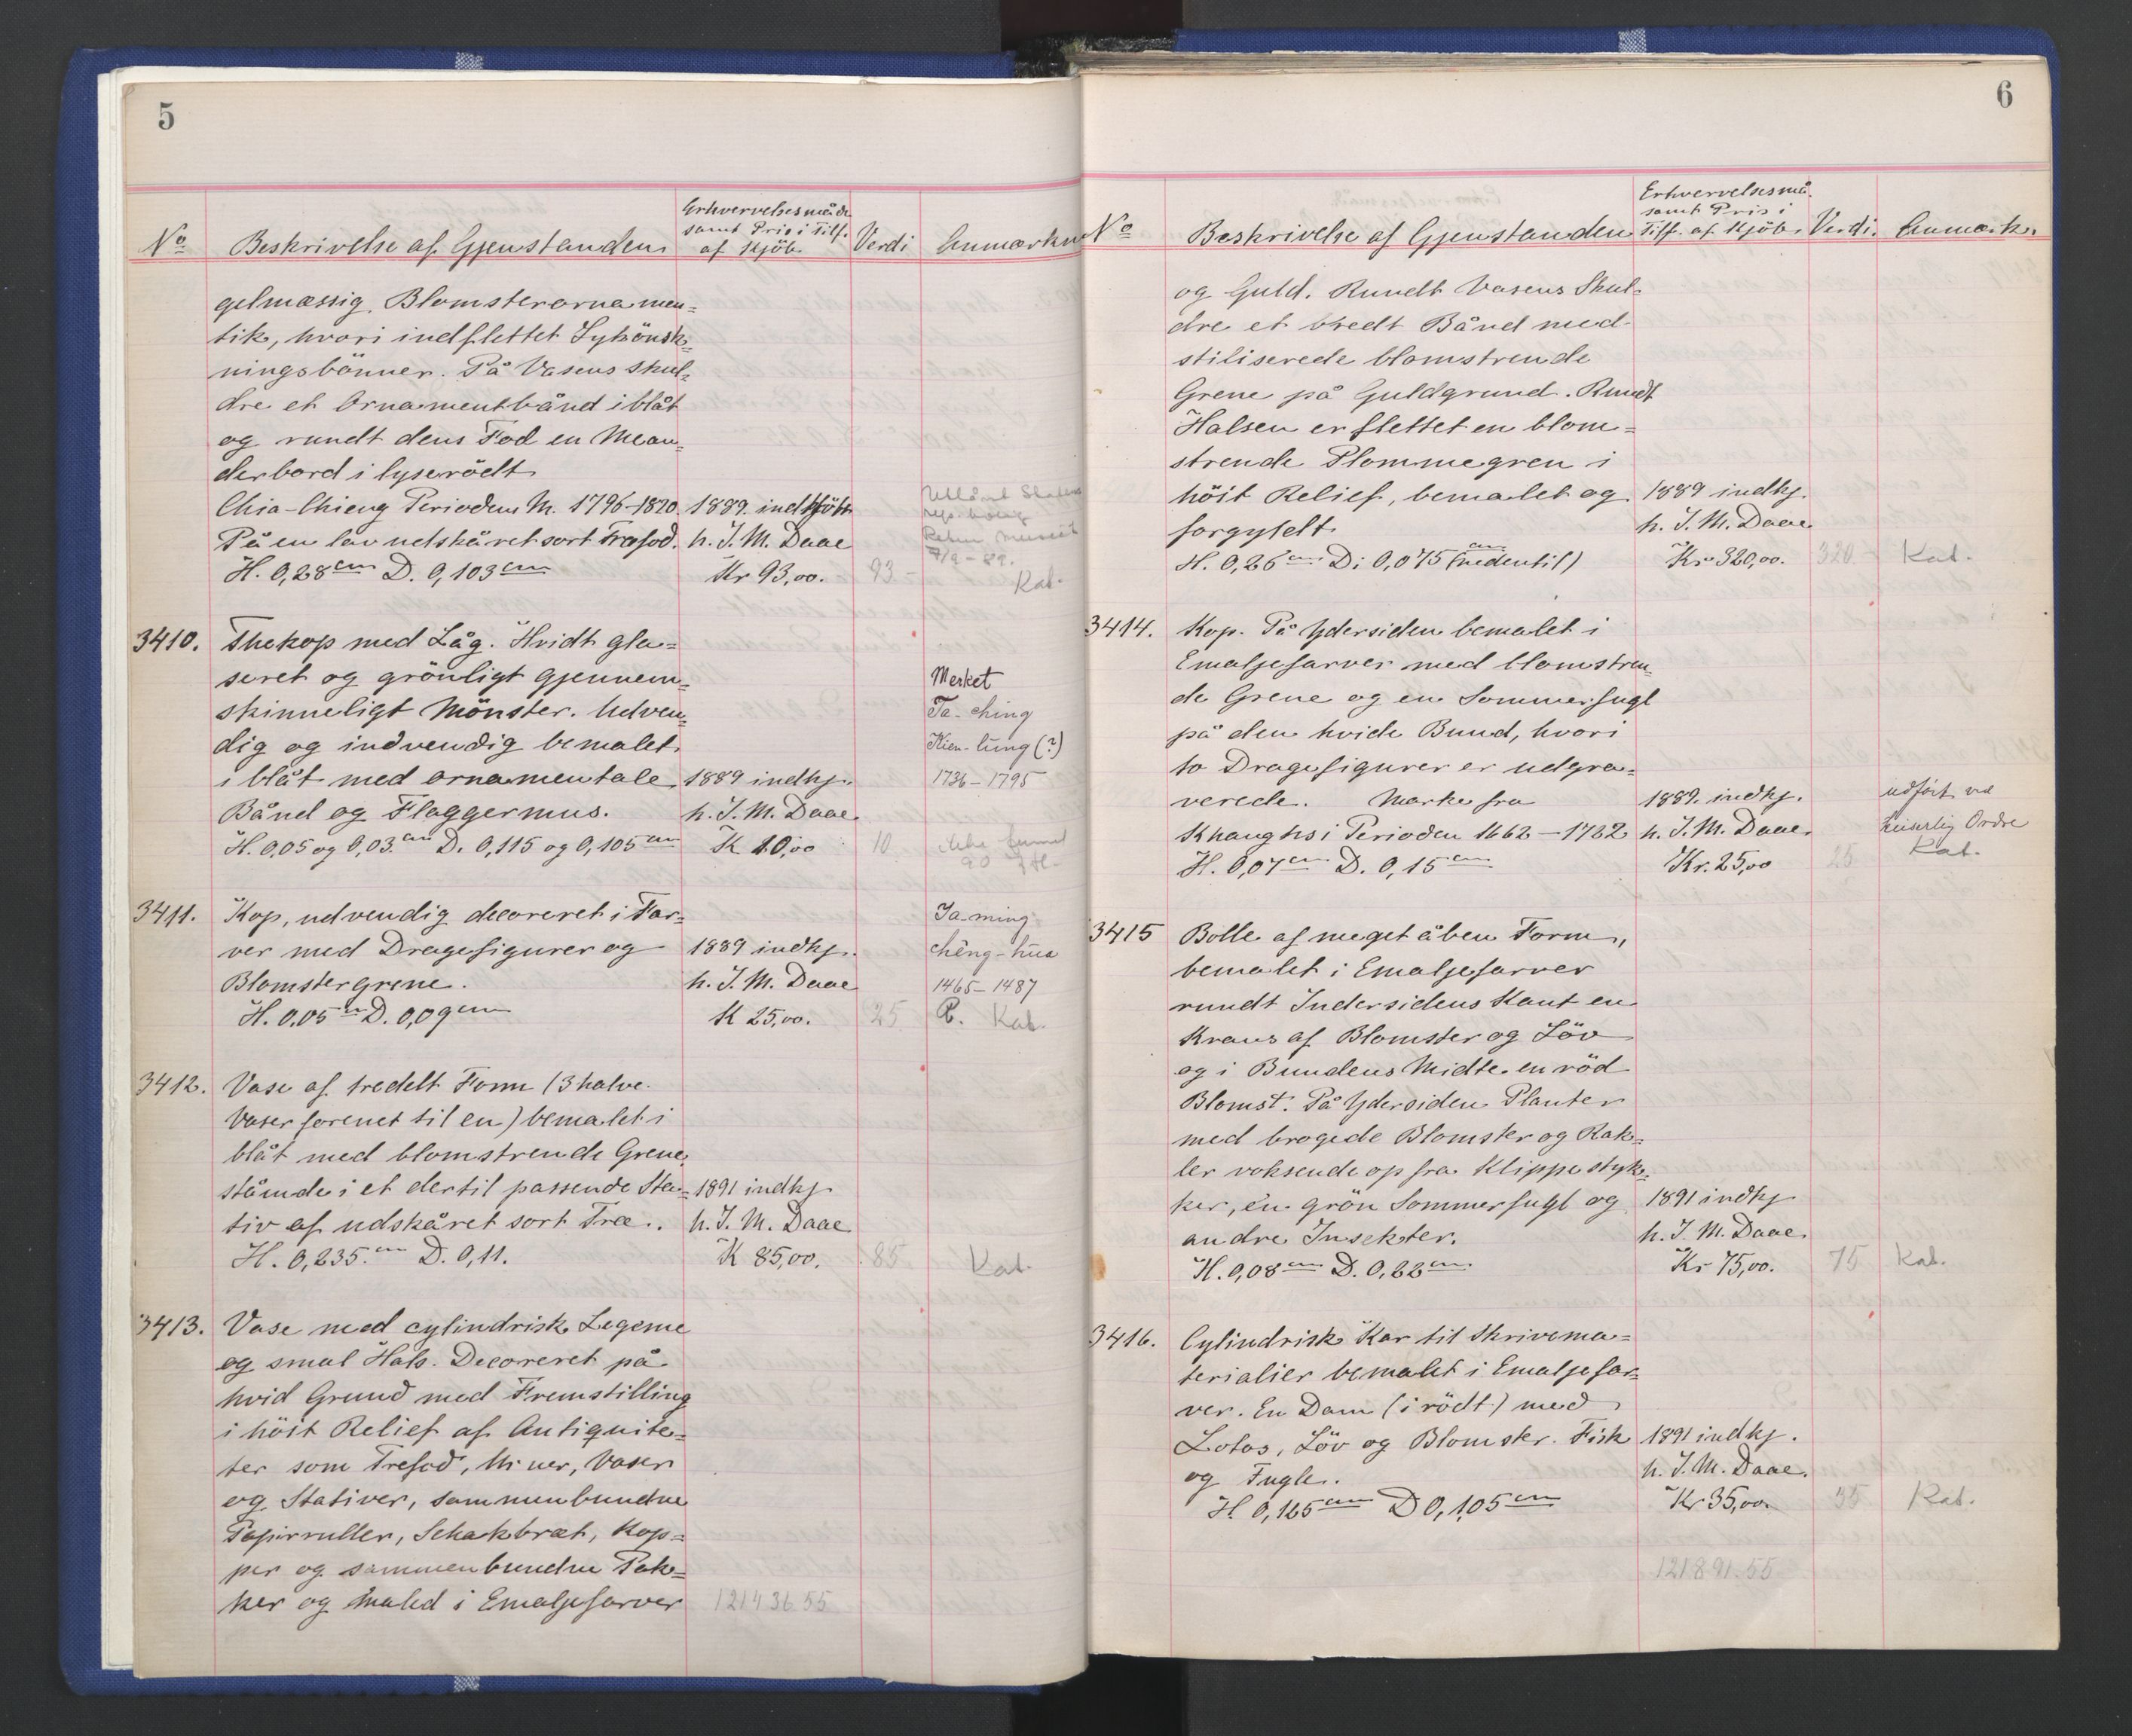 5
No
Beskrivelse af Gjenstanden
Erhvervelsesmåde
samt Pris i Tilf.
af Kjöb.
Verdi
Anmærkn
gelmæssig Blomsterornamen=
tik, hvori indflettet Lykönsk=
ningsbönner. På Vasens Skul=
dre et Ornamentbånd i blåt
og rundt dens Fod en Mean=
derbord i lyserödt
Chia-Chieng Perioden M. 1796-1820.
1889. indkjöbt
På en lav udskåret sort Træfod.
h. I. M. Daae
H. 0,28 cm D. 0,103 cm
Kr 93,00.
93 -
7/9 - 89.
Kat.
3410.
Thekop med Låg. Hvidt gla=
seret og grönligt gjennem=
skinneligt Mönster. Udven=
dig og indvendig bemalet
i blåt med ornamentale
1889 indkj.
Bånd og Flaggermus.
h. I. M. Daae
H. 0,05 og 0,03 cm D. 0,115 og 0,105 cm
K 10,00
10
Merket
Ta-ching
Kien-lung (?)
1736-1795
3411.
Kop, udvendig decoreret i Far=
ver med Dragefigurer og
1889 indkj.
Blomstergrene.
h. I. M. Daae
H. 0,05 m D. 0,09 cm
K 25,00.
25
Ta ming
chêng-hua
1465-1487
P. Kat.
3412.
Vase af tredelt Form (3 halve
Vaser forenet til en) bemalet i
blåt med blomstrende Grene,
stående i et dertil passende Sta=
1891 indkj.
tiv af udskåret sort Træ.
h. I. M. Daae
H. 0,235 cm D. 0,11.
K 85,00.
85
Kat.
3413.
Vase med cylindrisk Legeme
og smal Hals. Decoreret på
hvid Grund med Fremstilling
i höit Relief af Antiquite=
ter som Trefod, Urner, Vaser
og Stativer, sammenbundne
Papirruller, Schakbræt, Kop=
per og sammenbundne Pak=
ker og maled i Emaljefarver
121436.55
6
No
Beskrivelse af Gjenstanden
Erhvervelsesmå.
samt Pris i
Tilf. af Kjöb.
Verdi.
Anmærk.
og Guld. Rundt Vasens Skul=
dre et bredt Bånd med
stiliserede blomstrende
Grene på Guldgrund. Rundt
Halsen er flettet en blom=
strende Plommegren i
höit Relief, bemalet og
1889 indkj.
forgyldt
h. I. M. Daae
H. 0,26 cm D: 0,075 cm (nedentil)
Kr 320,00.
320
Kat.
3414.
Kop. På Ydersiden bemalet i
Emaljefarver med blomstren=
de Grene og en Sommerfugl
på den hvide Bund, hvori
to Dragefigurer er udgra=
verede. Marke fra
1889. indkj.
Khanghsi Perioden 1662-1722
h. I. M. Daae.
H. 0,07 cm D. 0,15 cm
Kr. 25,00
25
udfört ved
keiserlig Ordre
Kat.
3415
Bolle af meget åben Form,
bemalet i Emaljefarver
rundt Indersidens Kant en
Krans af Blomster og Löv
og i Bundens Midte en röd
Blomst. På Ydersiden Planter
med brogede Blomster og Rak=
ler voksende op fra Klippestyk=
ker, en grön Sommerfugl og
1891 indkj
andre Insekter.
h. I. M. Daae.
H. 0,08 cm D. 0,22 cm
Kr 75,00.
75
Kat.
3416.
Cylindrisk Kar til Skrivema=
terialier bemalet i Emaljefar=
ver. En Dam (i rödt) med
Lotos, Löv og Blomster. Fisk
1891 indkj.
og Fugle.
h. I. M. Daae.
H 0,125 cm D 0,105 cm
Kr 35,00.
35
Kat.
121891.55